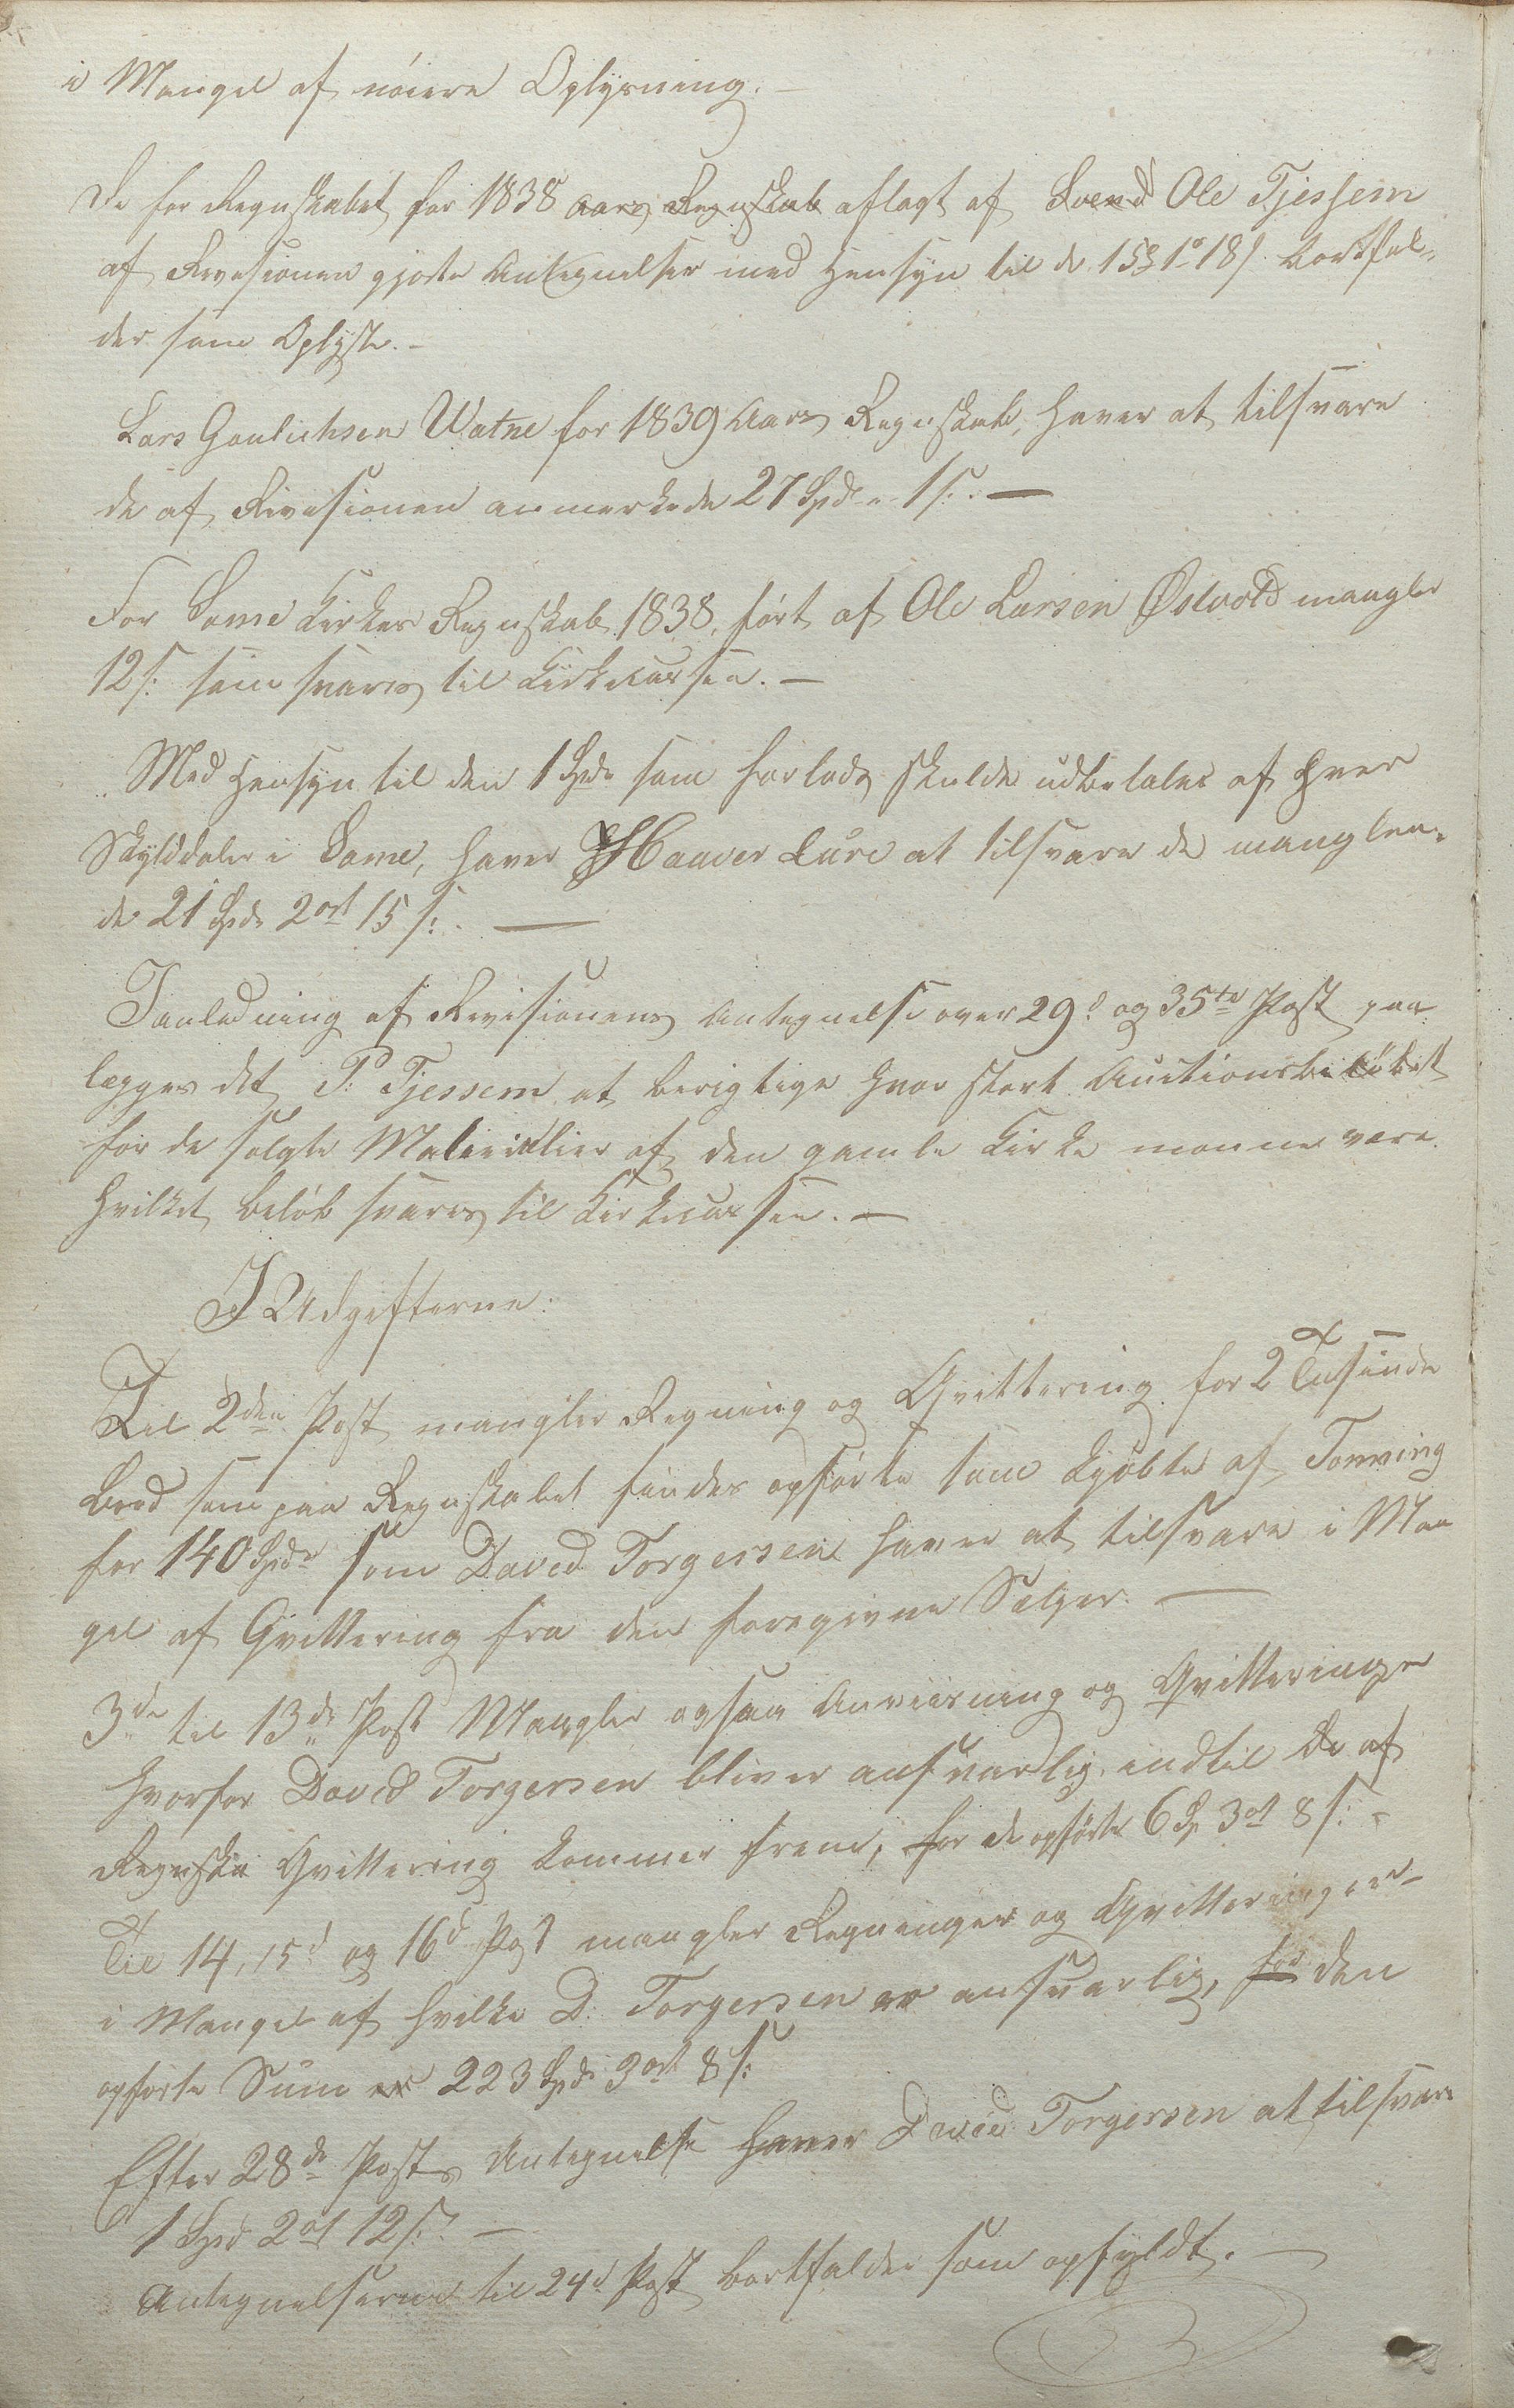 i Mangel af nøiere Oplysning. –
De for Regnskabet for 1838 Aars Regnskab aflagt af Svend Ole Tjessem
af Revisionen gjorte Antegnelser med Hensyn til de 15 1 18 s. bortfal-
der som Oplyste. –
Lars Gaulichsen Watne for 1839 Aars Regnskab, haver at tilsvare
de af Revisionen anmerkede 27 Spd „ 1 s: –
For Some Kirkes Regnskab 1838, ført af Ole Larsen Østvold mangler
12 s: som svares til Kirkecassen. –
Med Hensyn til den 1 Spd som forlods skulde udbetales af hver
Skylddaler i Some, haver Haaver Lure at tilsvare de manglen-
de 21 Spd 2 ort 15 s: –
I anledning af Revisionens Antegnelse over 29d og 35te Post paa-
lægges det P: Tjessem at berigtige hvor stort Auctionsbeløbet
for de solgte Materialier af den gamle Kirke monne være
hvilket Beløb svares til Kirkecassen. –
I Udgifterne:
Til 2den Post mangler Regning og Qvittering for 2 Tusinde
Bord som paa Regnskabet findes opførte som kjøbte af Tonning
for 140 Spd som David Torgersen haver at tilsvare i Man
gel af Qvittering fra den foregivne Sælger. –
3de til 13de Post Mangler ogsaa Anviisning og Qvitteringer
hvorfor David Torgersen bliver ansvarlig, indtil De af
Regnska Qvittering kommer frem, for de opførte 6 Sp 3 ort 8 s: –
Til 14, 15d og 16d Post mangler Regninger og Qvitteringer –
i Mangel af hvilke D: Torgersen er ansvarlig, for den
opførte Sum er 223 Spd 3 ort 8 s:
Efter 28de Posts Antegnelse haver David Torgersen at tilsvare
1 Spd 2 ort 12 s: –
Antegnelserne til 24d Post bortfalder som opfyldt. –